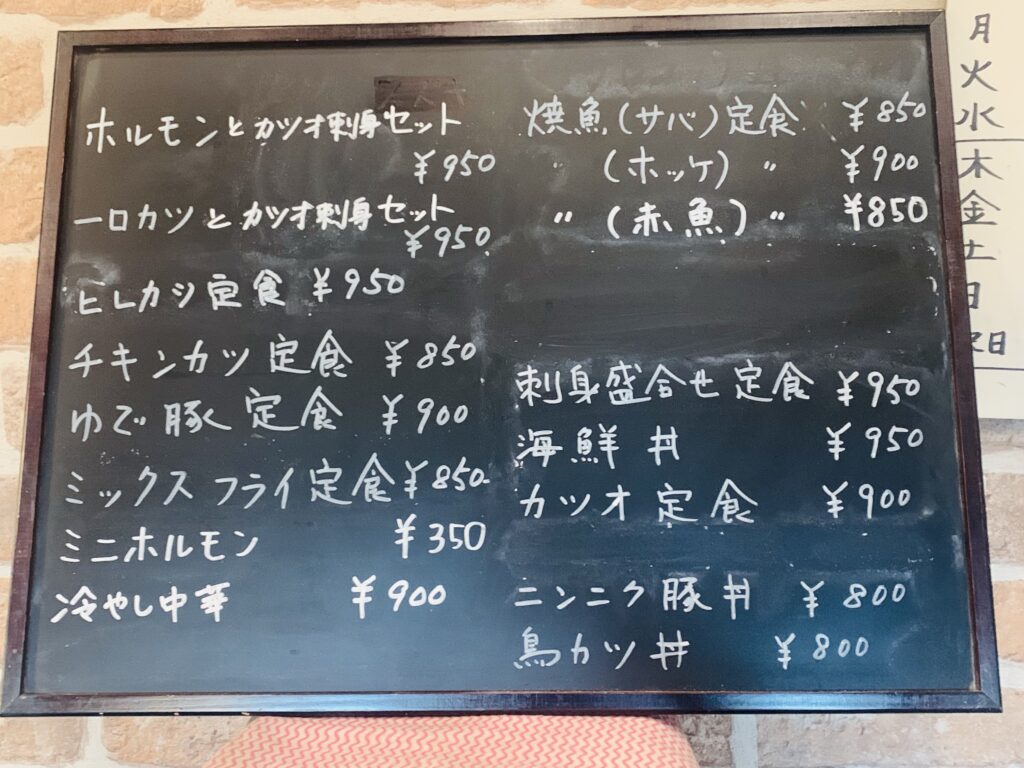 ホルモンとカツオ刺身セット
¥950
一口カツとカツオ刺身セット
¥950
ヒレカツ定食 ¥950
チキンカツ定食 ¥850
ゆで豚定食 ¥900
ミックスフライ定食 ¥850
ミニホルモン ¥350
冷やし中華 ¥900
焼魚(サバ)定食 ¥850
〃 (ホッケ) 〃 ¥900
〃 (赤魚) 〃 ¥850
刺身盛合せ定食 ¥950
海鮮丼 ¥950
カツオ定食 ¥900
ニンニク豚丼 ¥800
鳥カツ丼 ¥800
月
火
水
木
金
土
日